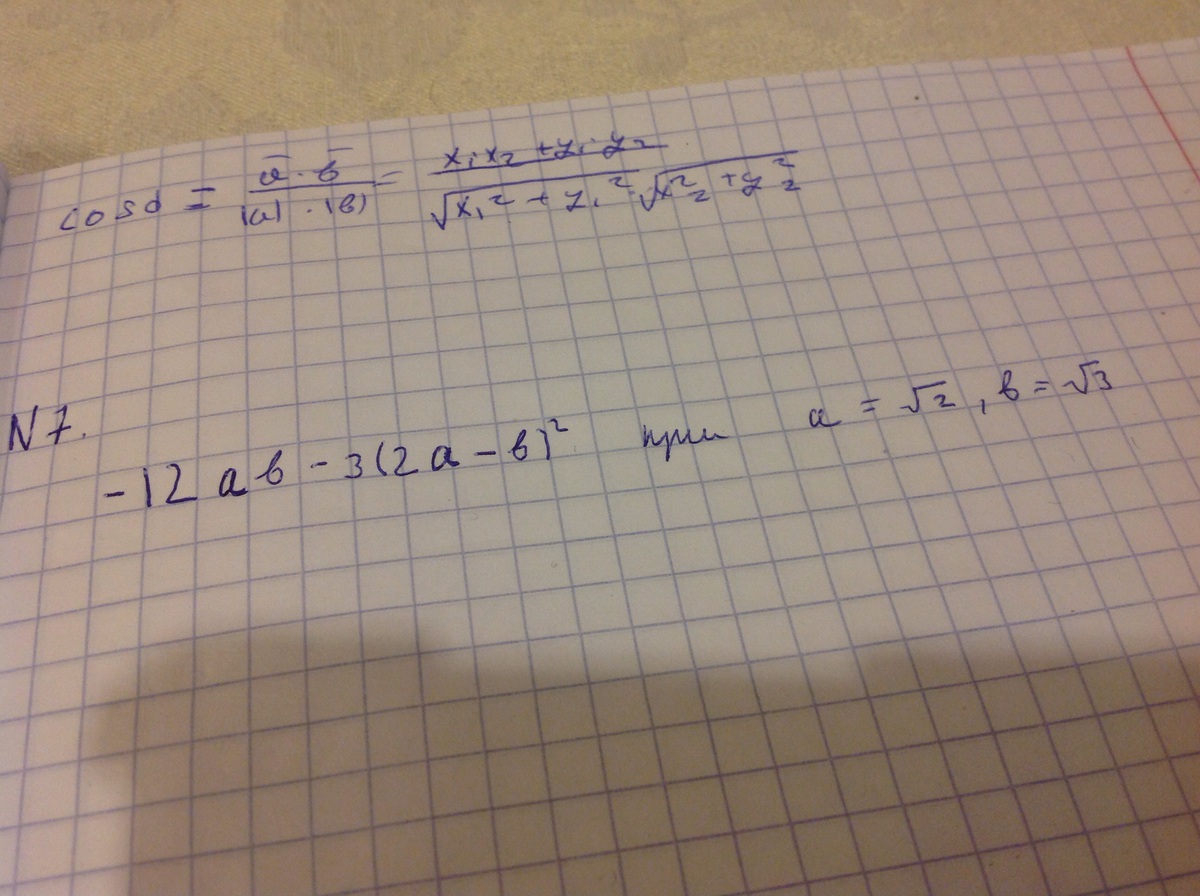 cosα = a̅ · b̅ / |a| · |b| = x₁x₂ + y₁·y₂ / √x₁² + y₁² · √x₂² + y₂²
N 7.
-12ab - 3(2a - b)² при a = √2, b = √3